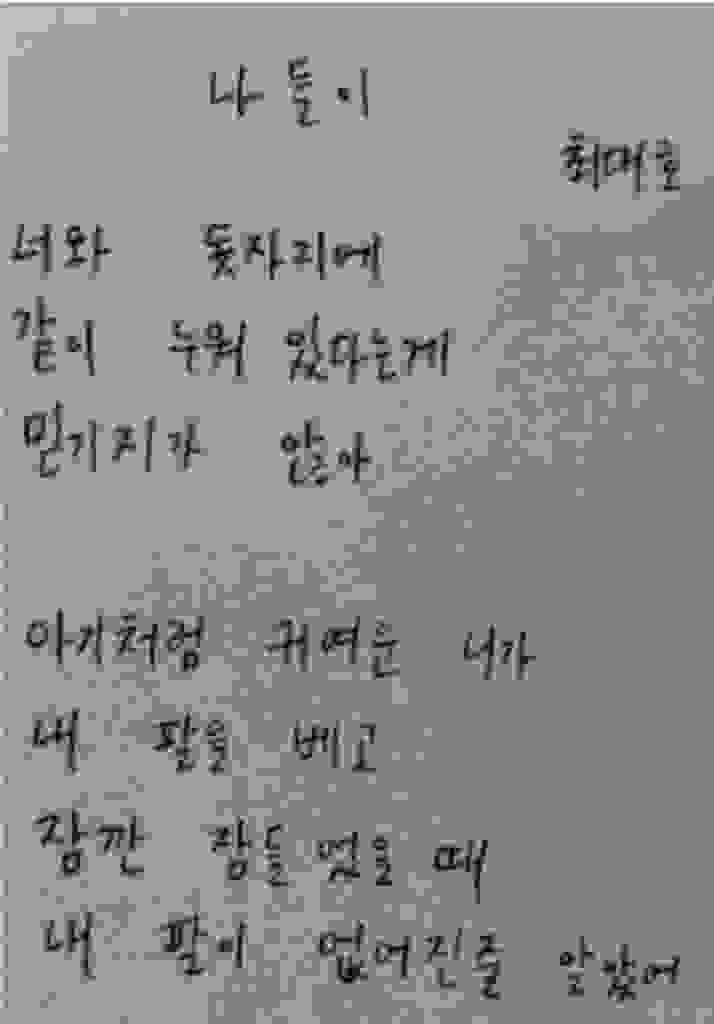 나들이
최대호
너와 돗자리에
같이 누워 있다는게
믿기지가 않아
아기처럼 귀여운 니가
내 팔을 베고
잠깐 잠들었을 때
내 팔이 없어진줄 알았어